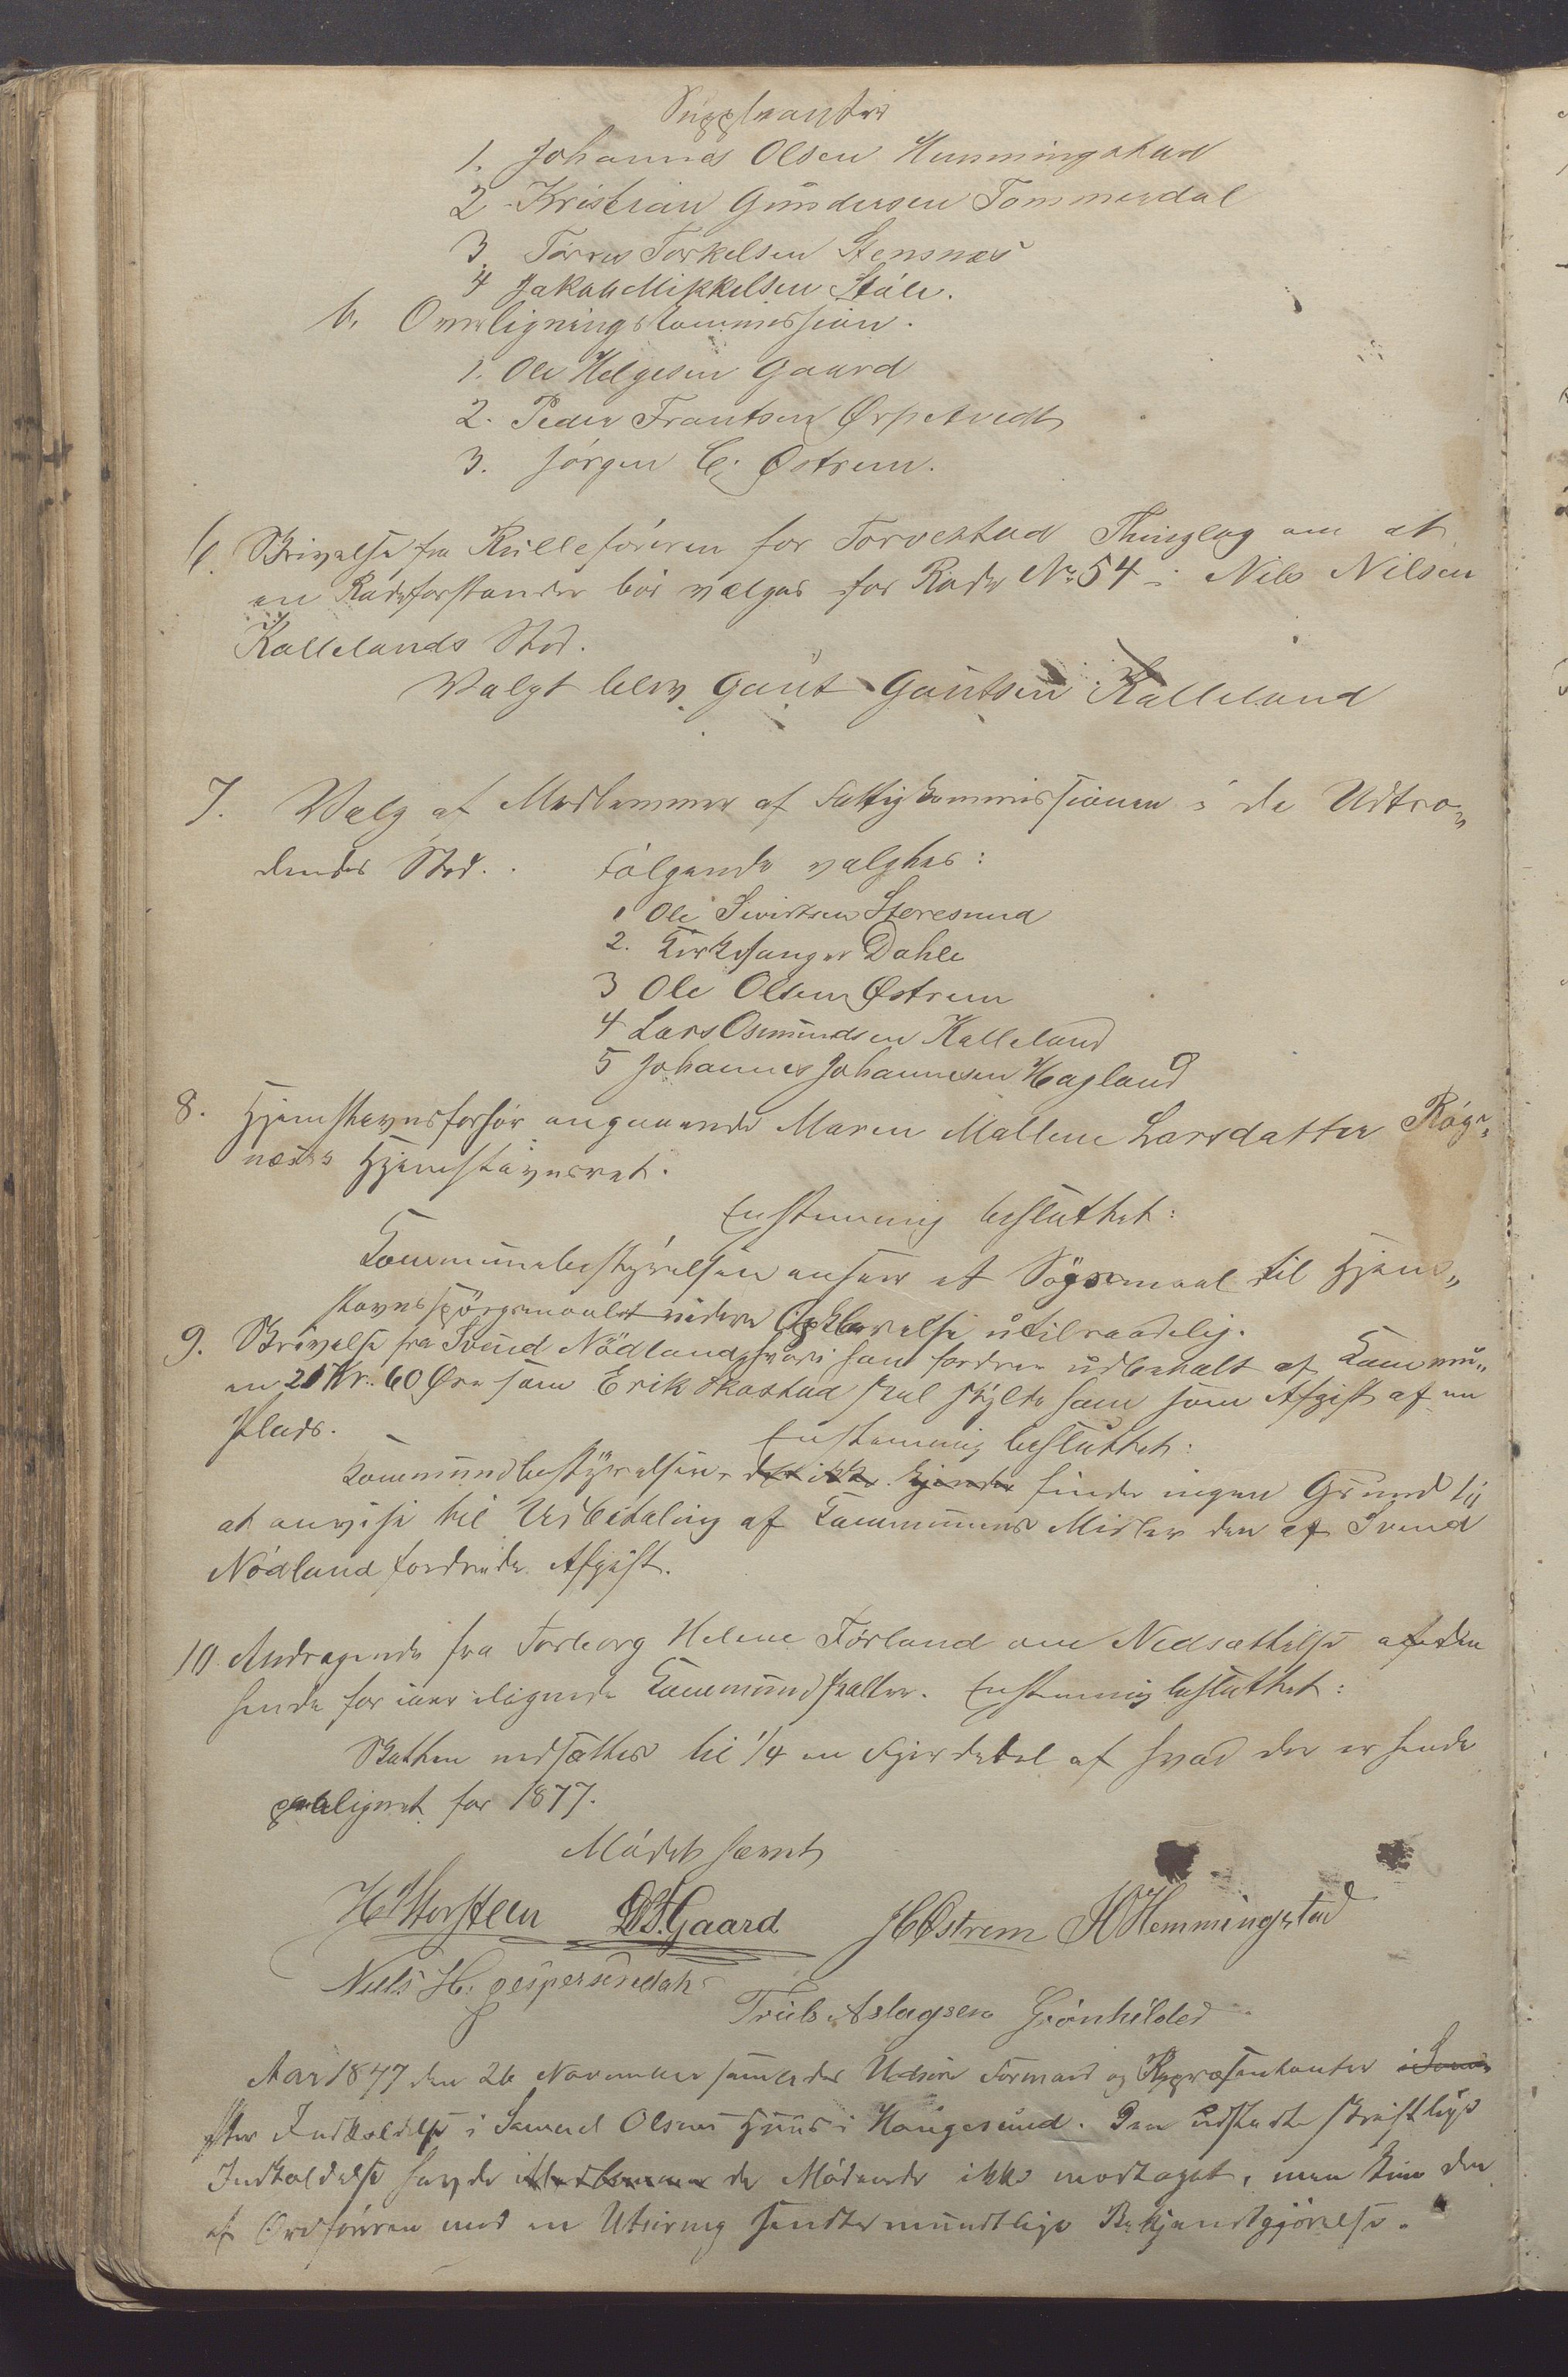 Suppleanter
1. Johannes Olsen Hemmingstad
2. Kristian Gundersen Tommerdal
3. Tørres Torkelsen Stensnæs
4 Jakob Mikkelsen Ståle.
b. Overligningskommission.
1. Ole Helgesen Gaard
2. Peder Frantsen Ørpetvedt
3. Jørgen C. Østrem.
6. Skrivelse fra Rulleføreren for Torvestad Thinglag om at
en Rodeforstander bør vælges for Rode No 54 i Nils Nilsen
Kallelands Sted.
Valgt blev Gaut Gautsen Kalleland
7. Valg af Medlemmer af Fattigkommissionen i de Udtræ„
dendes Sted. Følgende valgtes:
1 Ole Sivertsen Storesund
2. Kirkesanger Dahle
3 Ole Olsen Østrem
4 Lars Osmundsen Kalleland
5 Johannes Johannesen Hagland
8. Hjemstavnsforhør angaaende Maren Mallene Larsdatter Røg„
næs's Hjemstavnsret.
Enstemmig besluttet:
Kommunebestyrelsen anser et Søgsmaal til Hjem„
stavnsspørgsmaalet videre Opklarelse utilraadelig.
9. Skrivelse fra Svend Nödland, hvori han fordrer udbetalt af Kommu„
en 21 Kr. 60 Øre som Erik Skastad skal skylde ham som Afgift af en
Plads.
Enstemmig besluttet:
Kommunebestyrelsen det ikke kjender finder ingen Grund til
at anvise til Udbetaling af Kommunens Midler den af Svend
Nödland fordrede Afgift.
10. Andragende fra Torborg Helene Førland om Nedsættelse af den
hende for iaar ilignede Kommuneskatter. Enstemmig besluttet:
Skatten nedsættes til 1/4 en Fjerdedel af hvad der er hende
paalignet for 1877.
Mødet hævet
H Storsteen D. T. Gaard J C Østrem J O Hemmingstad
Niels H. Jespersen
Truls Aslagsen Grønhilder
Aar 1877 den 26 November samledes Utsire Formænd og Repræsentanter
efter Indkaldelse i Samuel Olsens Huus i Haugesund. Den udstedte skriftlige
Indkaldelse havde Medlemmer de Mødende ikke modtaget, men kun den
af Ordføreren med en Utsiring sendte mundtlige Bekjendtgjørelse.